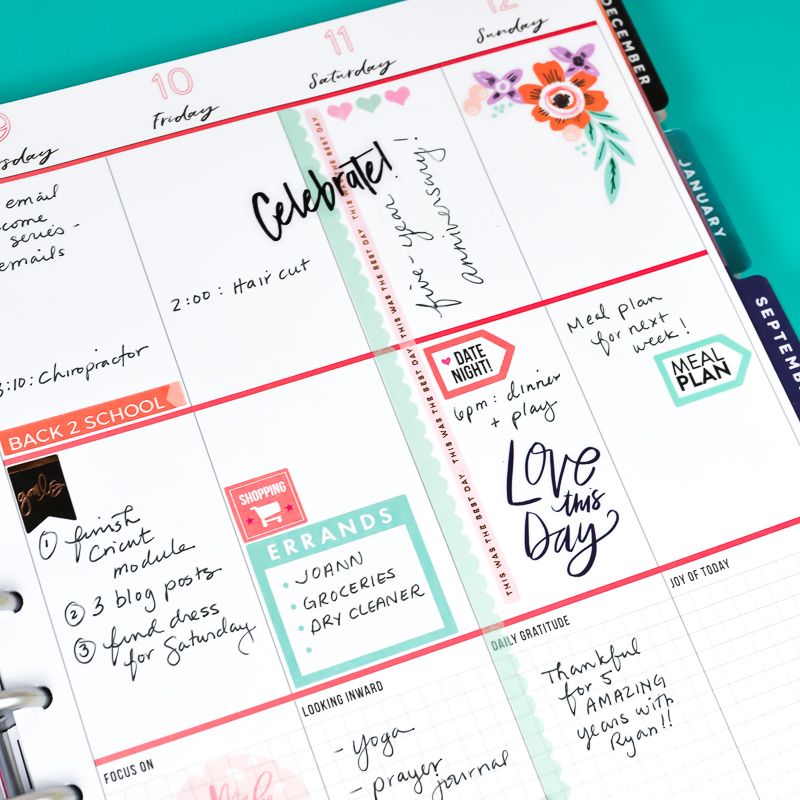 9
10
11
12
Friday
Saturday
Sunday
DECEMBER
JANUARY
email
series -
emails
3:10: Chiropractor
BACK 2 SCHOOL
goals
① finish
Cricut
module
② 3 blog posts
③ find dress
for Saturday
FOCUS ON
2:00: Haircut
SHOPPING
ERRANDS
JOANN
GROCERIES
DRY CLEANER
LOOKING INWARD
- yoga
- prayer
journal
Celebrate!
five-year
anniversary!
THIS WAS THE BEST DAY THIS WAS THE BEST DAY THIS WAS THE BEST DAY THIS WAS THE BEST DAY THIS WAS THE BEST DAY
DATE
NIGHT!
6pm: dinner
+ play
LOVE
this
Day
DAILY GRATITUDE
Thankful
for 5
AMAZING
years with
Ryan!!
Meal plan
for next
week!
MEAL
PLAN
JOY OF TODAY